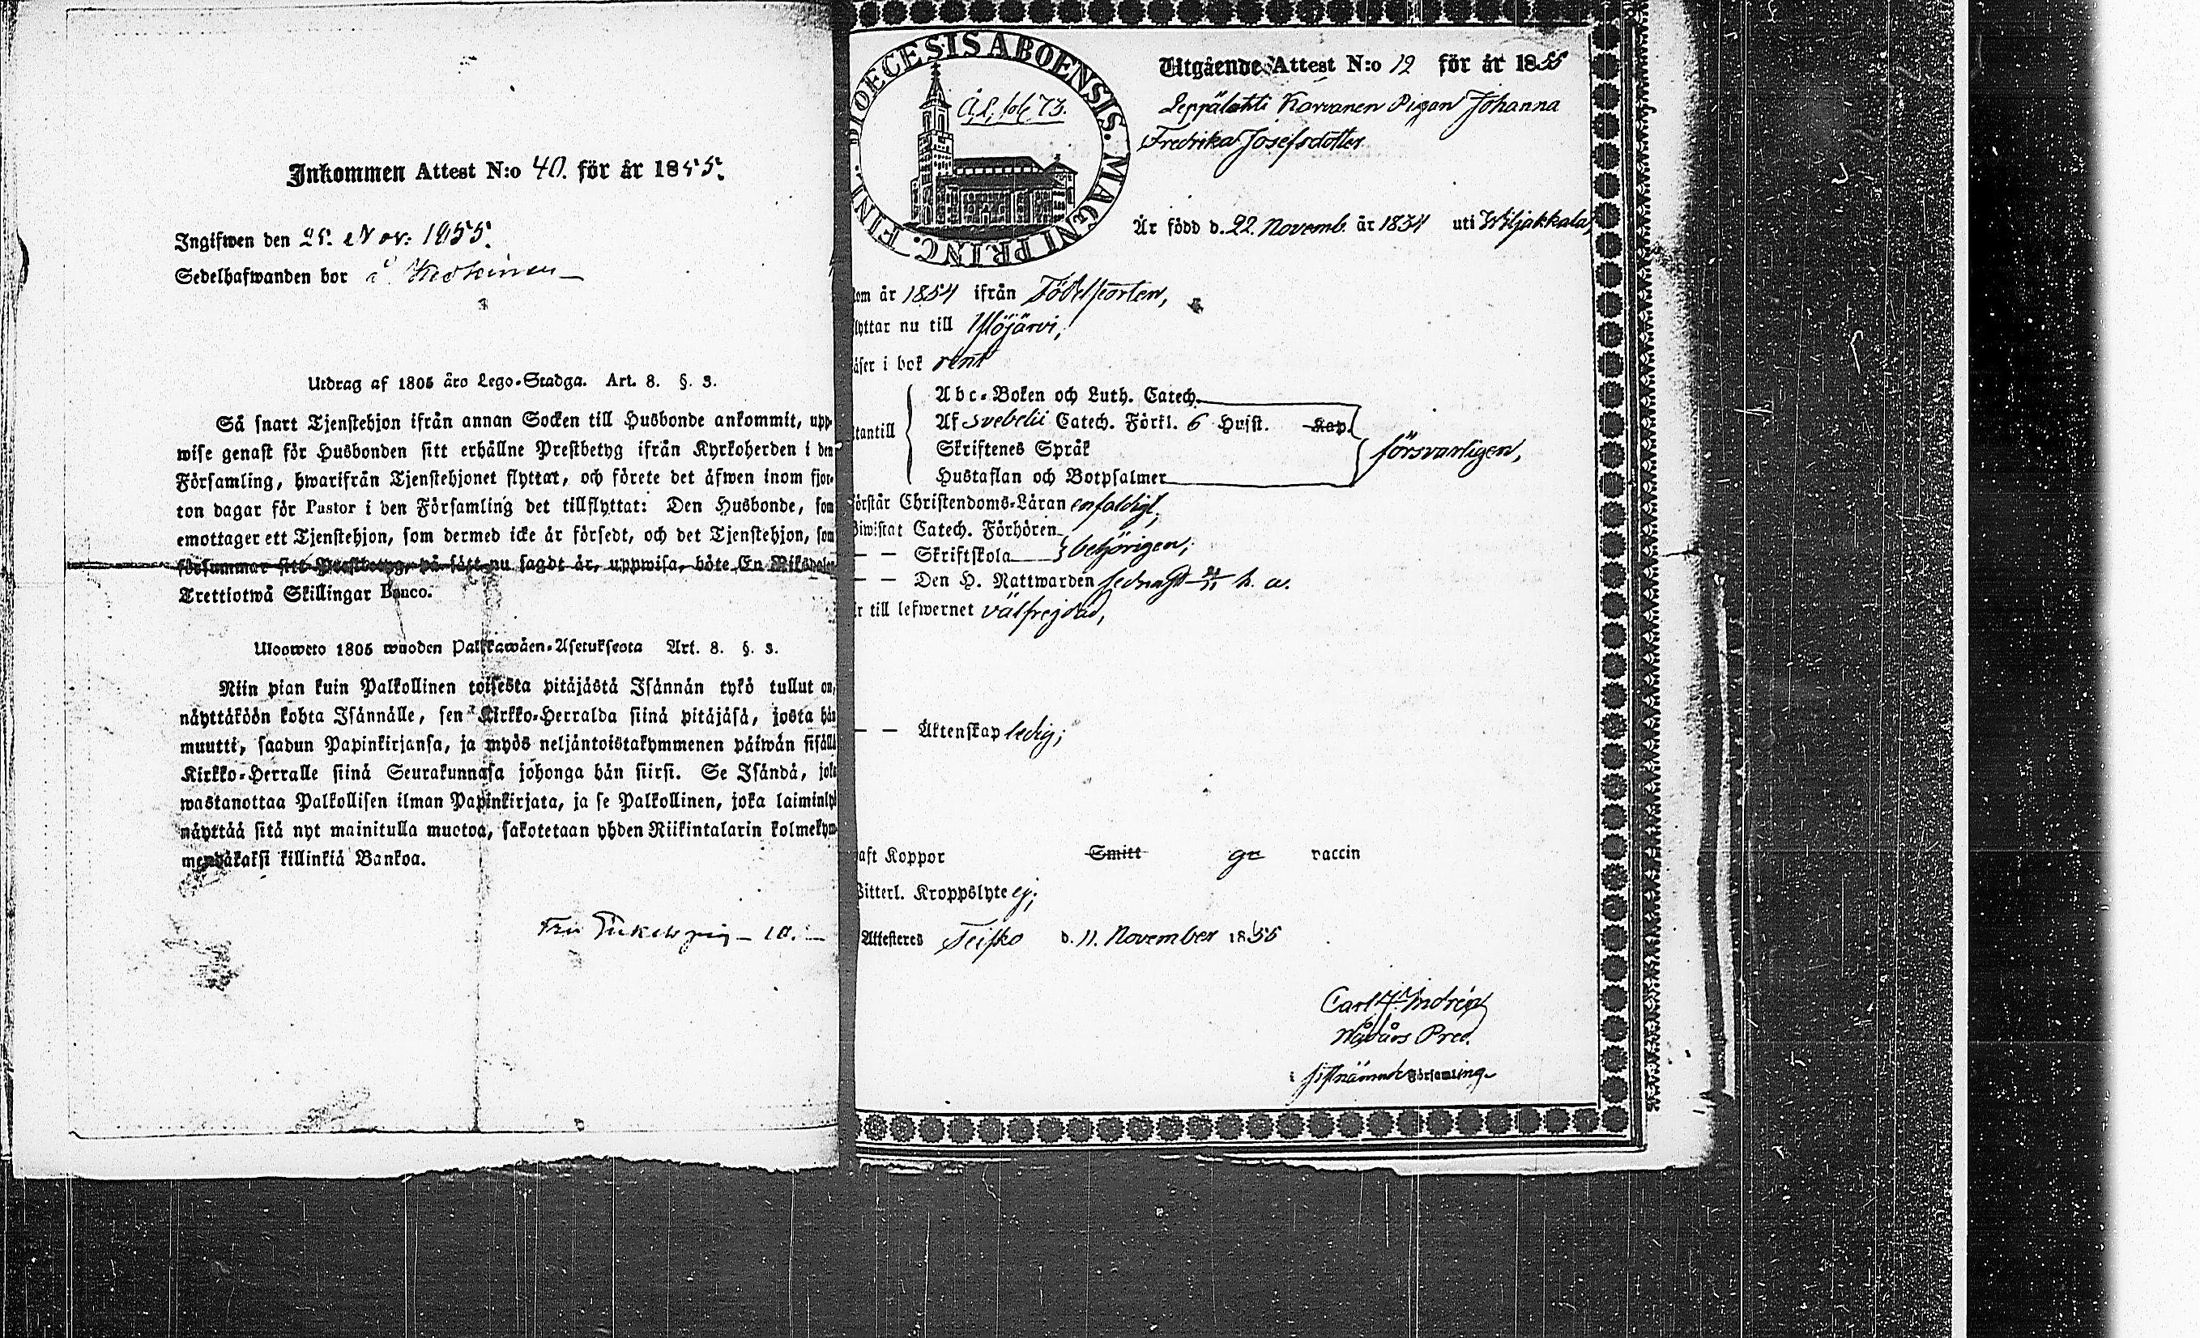 Inkommen Attest N:o 40. för år 1855.
Ingifwen den 25. Nov: 1855.
Sedelhafwanden bor å
Utdrag af 1805 års Lego-Stadga. Art. 8. §. 3.
Så snart Tjenstehjon ifrån annan Socken till Husbonde ankommit, upp-
wise genast för Husbonden sitt erhållne Prestbetyg ifrån Kyrkoherden i den
Församling, hwarifrån Tjenstehjonet flyttat, och förete det äfwen inom fjor-
ton dagar för Pastor i den Församling det tillflyttat: Den Husbonde, som
emottager ett Tjenstehjon, som dermed icke är försedt, och det Tjenstehjon, som
försummar sitt Prestbetyg, på sätt nu sagdt är, uppwisa, böte En Riksdaler
Trettiotwå Skillingar Banco.
Ulosweto 1805 wuoden Palkkawäen-Asetuksesta Art. 8. §. 3.
Niin pian kuin Palkollinen toisesta pitäjästä Isännän tykö tullut on,
näyttäköön kohta Isännälle, sen Kirkko-Herralda siinä pitäjäsä, josta hän
muutti, saadun Papinkirjansa, ja myös neljäntoistakymmenen päiwän sisällä
Kirkko-Herralle siinä Seurakunnasa johonga hän siirsi. Se Isändä, joka
wastanottaa Palkollisen ilman Papinkirjata, ja se Palkollinen, joka laiminlyö
näyttää sitä nyt mainitulla muotoa, sakotetaan yhden Riikintalarin kolmekym-
mendäkaksi killinkiä Bankoa.
10.
DIOECESIS ABOENSIS. MAGNI PRINC. FINL.
Å.l. fol. 73.
Utgående Attest N:o 12 för år 1855
Leppälahti Karvanen Pigan Johanna
Fredrika Josefsdotter
Är född d. 22. Novemb. år 1834 uti Wiljakkala,
kom år 1854 ifrån Födelseorten,
flyttar nu till Ylöjärvi,
läser i bok rent
Abc-Boken och Luth. Catech.
Af Svebelii Catech. Förkl. 6 Hufst. Kap.
utantill
Skriftenes Språk
försvarligen,
Hustaflan och Botpsalmer
Förstår Christendoms-Läran enfaldigt,
Biwistat Catech. Förhören
— — Skriftskola behörigen;
— — Den H. Nattwarden sednast h. a.
är till lefwernet välfrejdad,
— — Äktenskap ledig;
haft Koppor Smitt vaccin
Witterl. Kroppslyte ej;
Attesteras Teisko d. 11. November 1855
Carl
Nådårs Pred.
i sistnämnde Församling.